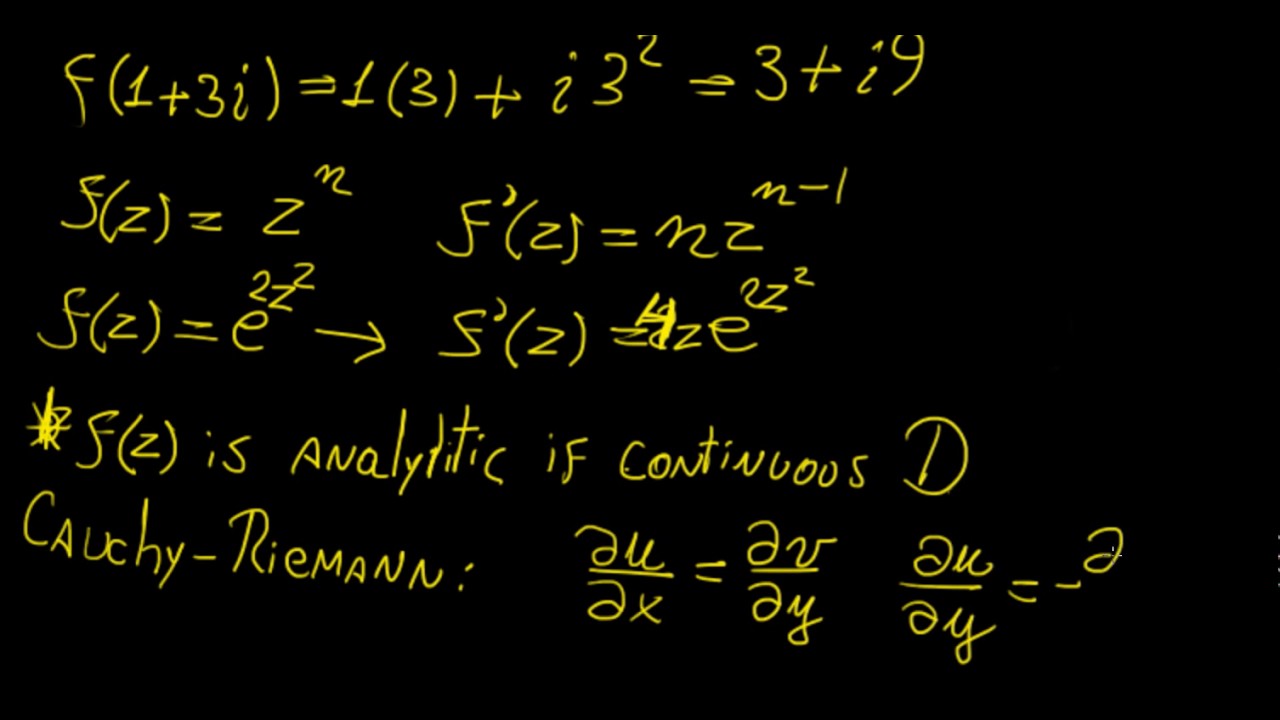 f(1+3i) = 1(3) + i3² = 3 + i9
f(z) = zⁿ f'(z) = nzⁿ⁻¹
f(z) = e^{2z²} → f'(z) = 4ze^{2z²}
* f(z) is ANAlytitic iF CONTINUOUS D
CAUChy-RiEMANN: ∂u/∂x = ∂v/∂y ∂u/∂y = -∂